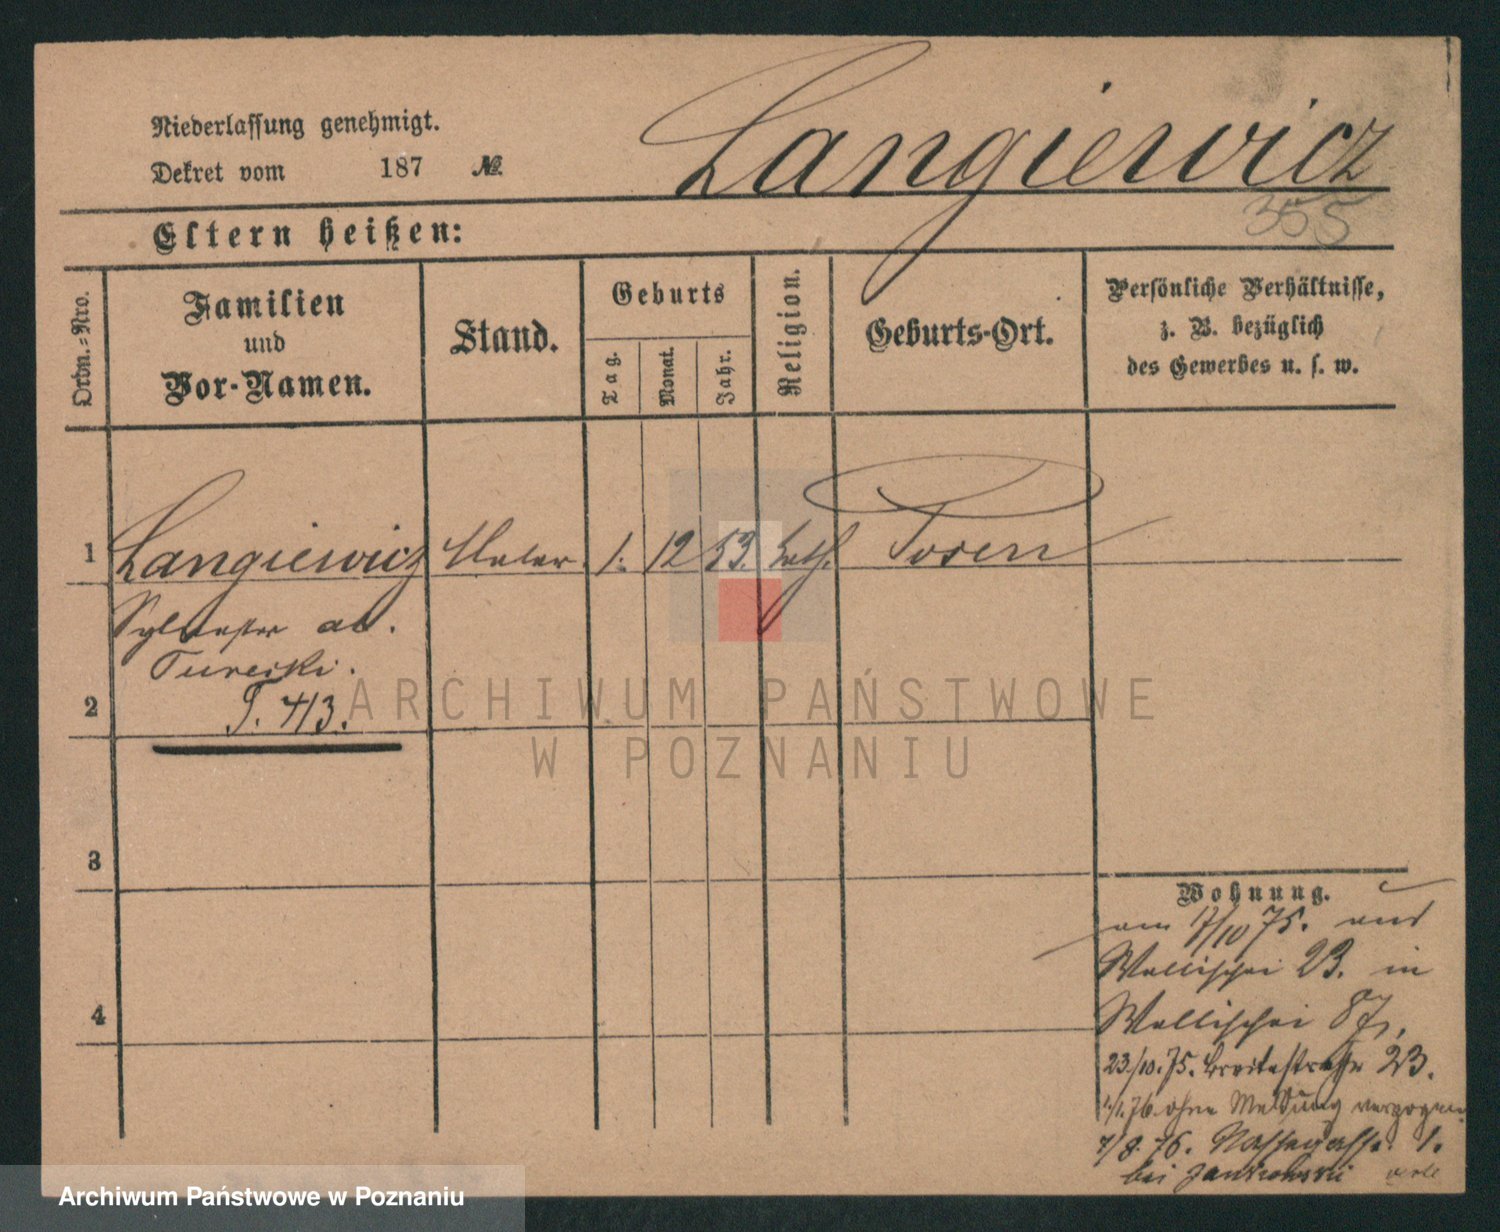 Niederlassung genehmigt.
Dekret vom 187 №
Langiewicz
355
Eltern heißen:
Ordn.-Nro.
Familien
und
Vor-Namen.
Stand.
Geburts
Tag.
Monat.
Jahr.
Religion.
Geburts-Ort.
Persönliche Verhältnisse,
z. B. bezüglich
des Gewerbes u. s. w.
1 Langiewicz Maler 1. 12 53. kath. Posen
Sylvester
Tureski.
2 T. 413.
ARCHIWUM PAŃSTWOWE
W POZNANIU
3
4
Wohnung.
am 17/10 75. aus
Wallischei 23. in
Wallischei 87,
23/10.75. Breitestraße 23.
1/1.76 ohne Meldung verzogen
7/8.76. Nassegasse 1.
bei Jankowski
Archiwum Państwowe w Poznaniu